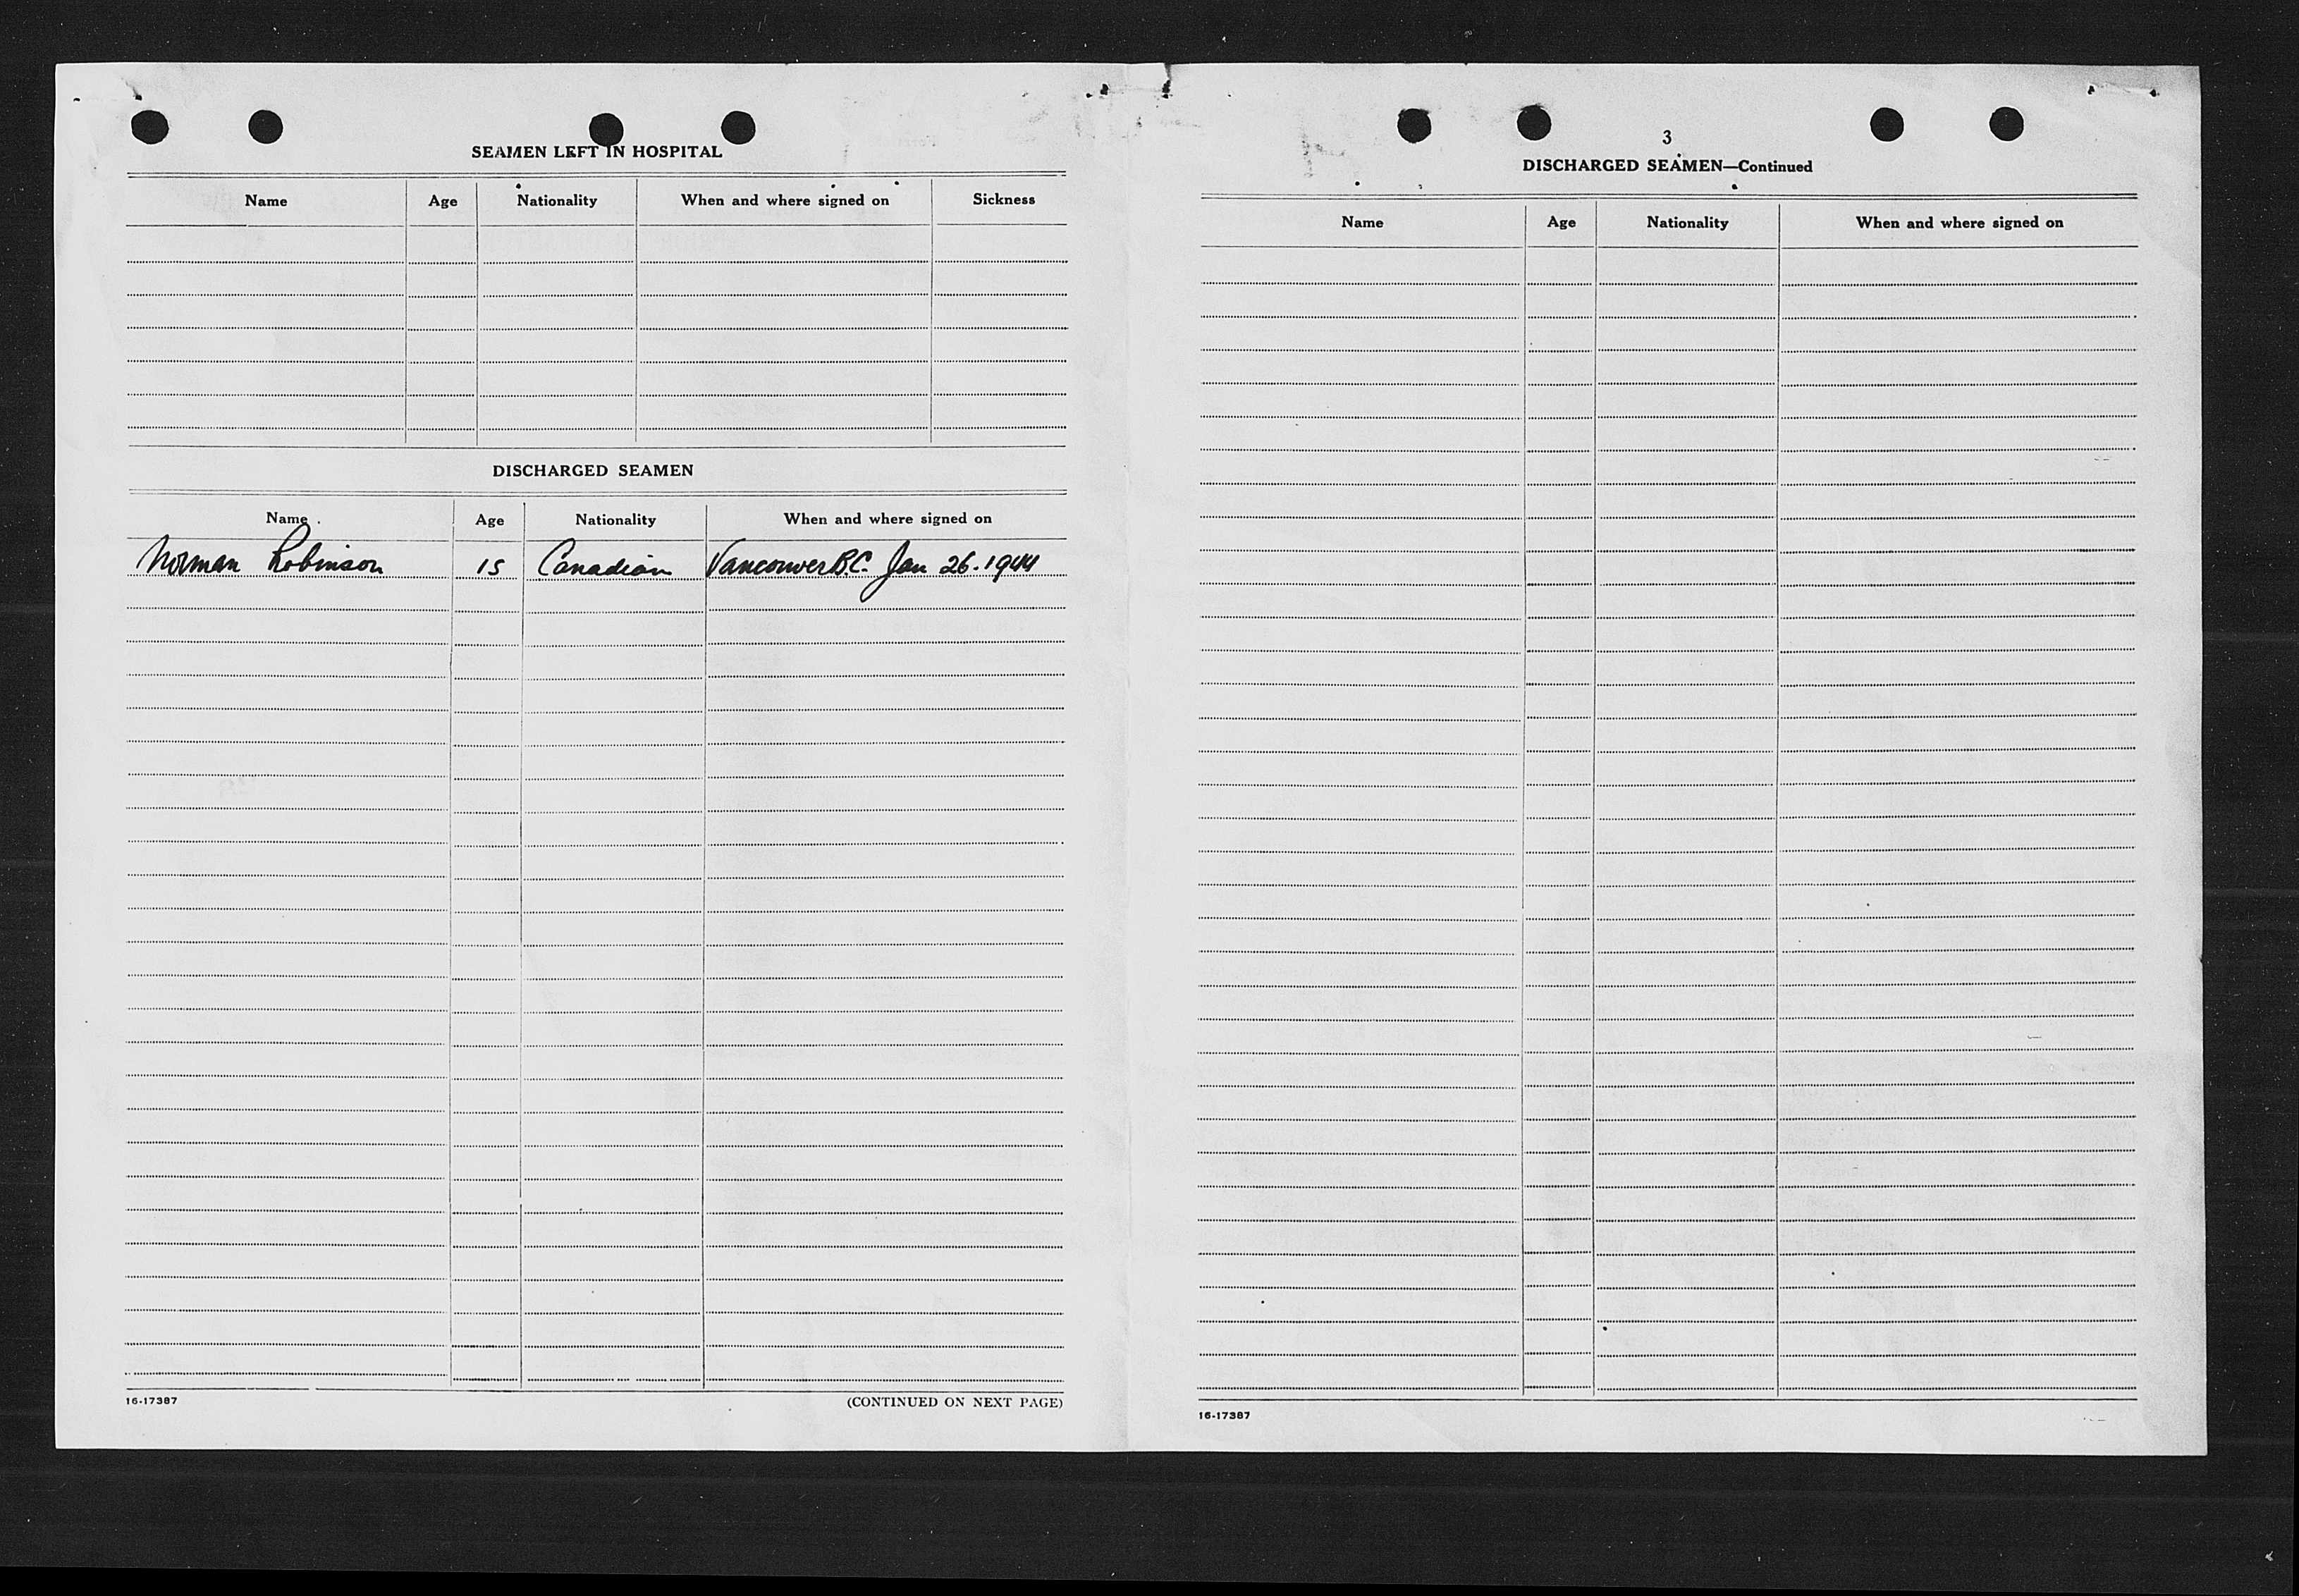 SEAMEN LEFT IN HOSPITAL
Name Age Nationality When and where signed on Sickness
DISCHARGED SEAMEN
Name Age Nationality When and where signed on
Norman Robinson 15 Canadian Vancouver B.C. Jan 26. 1944
16-17387 (CONTINUED ON NEXT PAGE)
3
DISCHARGED SEAMEN—Continued
Name Age Nationality When and where signed on
16-17387